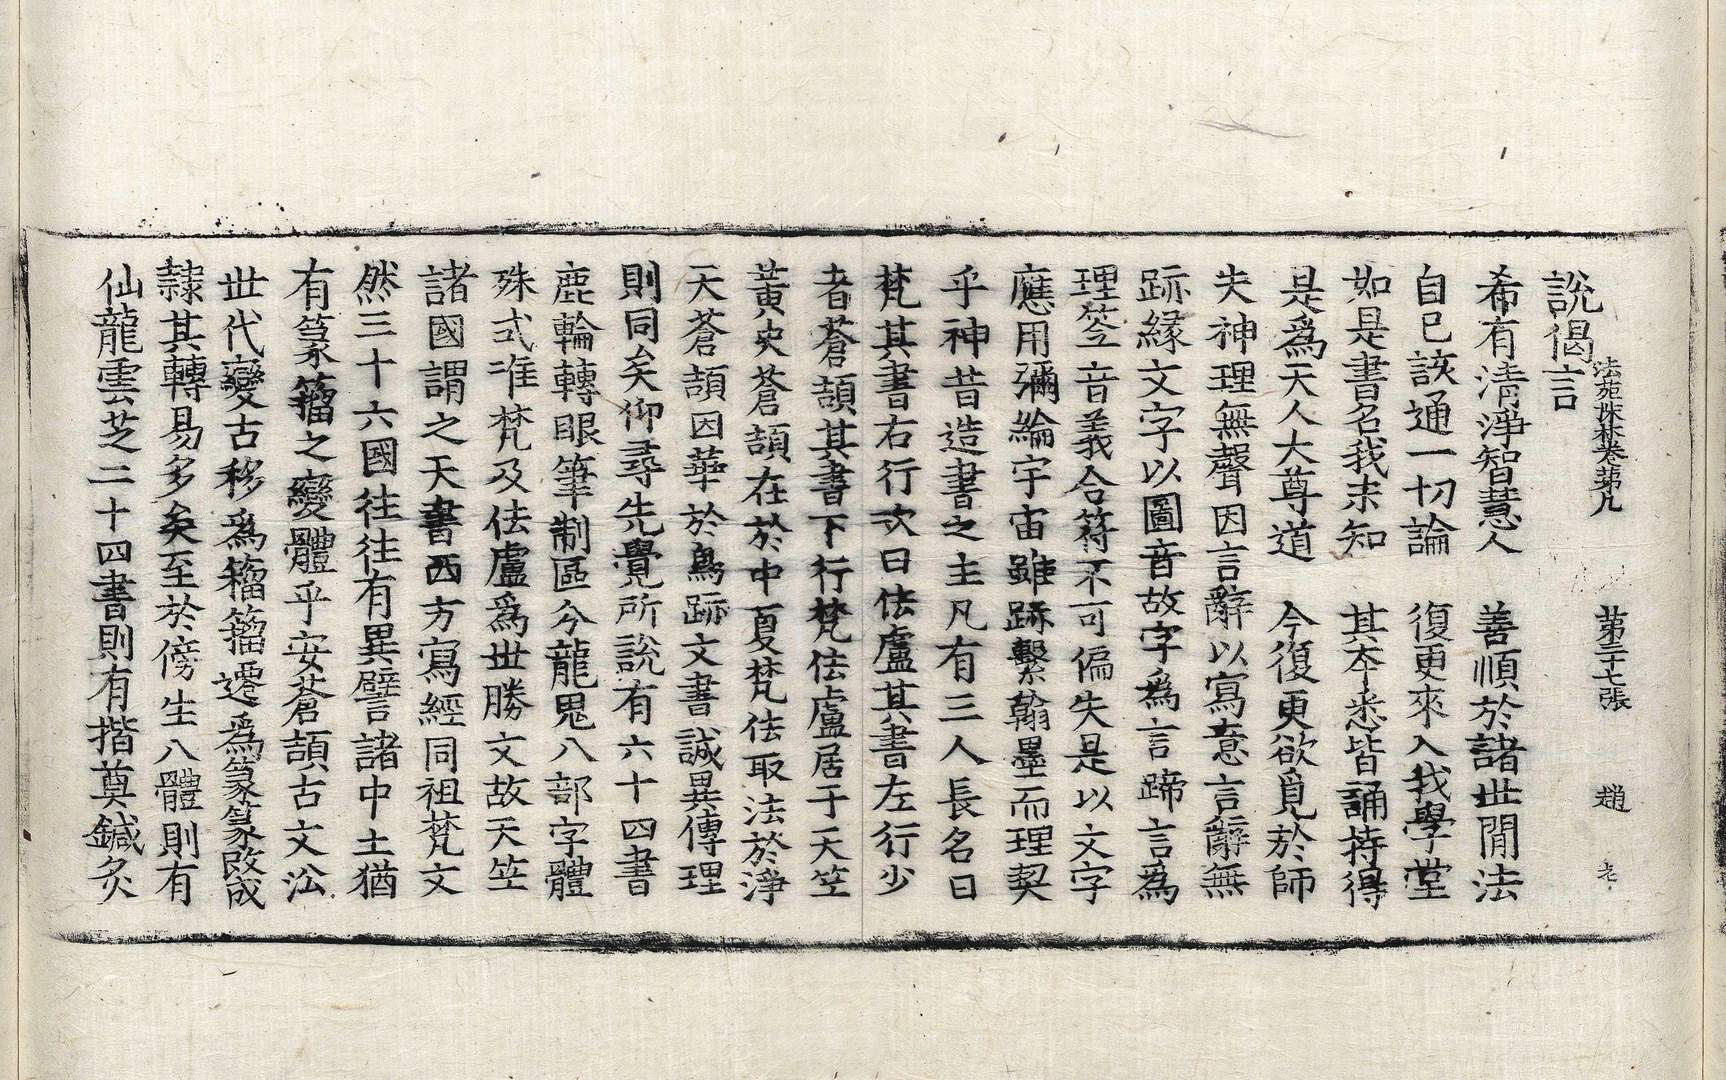 法苑珠林卷第九　第三十七張　趙　老
說偈言
希有清淨智慧人　善順於諸世間法
自已該通一切論　復更來入我學堂
如是書名我未知　其本悉皆誦持得
是爲天人大尊道　今復更欲覓於師
失神理無聲因言辭以寫意言辭無
跡緣文字以圖音故字爲言蹄言爲
理筌音義合符不可偏失是以文字
應用彌綸宇宙雖跡繫翰墨而理契
乎神昔造書之主凡有三人長名曰
梵其書右行次曰佉盧其書左行少
者蒼頡其書下行梵佉盧居于天竺
黃史蒼頡在於中夏梵佉取法於淨
天蒼頡因華於鳥跡文書誠異傳理
則同矣仰尋先覺所說有六十四書
鹿輪轉眼筆制區分龍鬼八部字體
殊式准梵及佉盧爲世勝文故天竺
諸國謂之天書西方寫經同祖梵文
然三十六國往往有異譬諸中土猶
有篆籀之變體乎安蒼頡古文㳂
世代變古移爲籀籀遷爲篆篆改成
隸其轉易多矣至於傍生八體則有
仙龍雲芝二十四書則有揩奠鍼炙